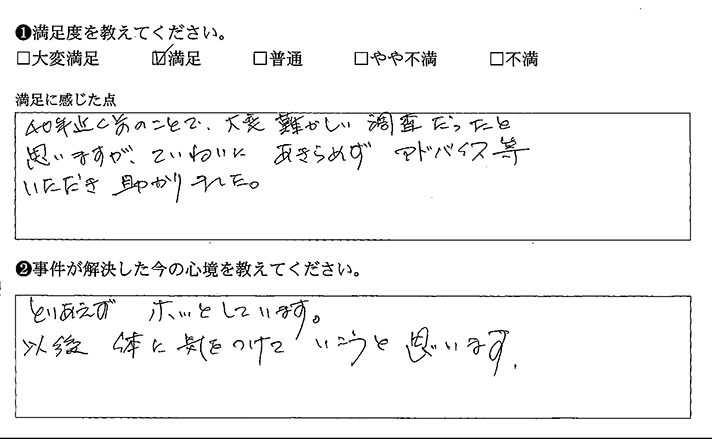 ❶満足度を教えてください。
□大変満足 ☑満足 □普通 □やや不満 □不満
満足に感じた点
40年近く前のことで、大変 難かしい 調査だったと
思いますが、ていねいに あきらめず アドバイス等
いただき 助かりました。
❷事件が解決した今の心境を教えてください。
とりあえず ホッとしています。
以後 体に気をつけて いこうと 思います.